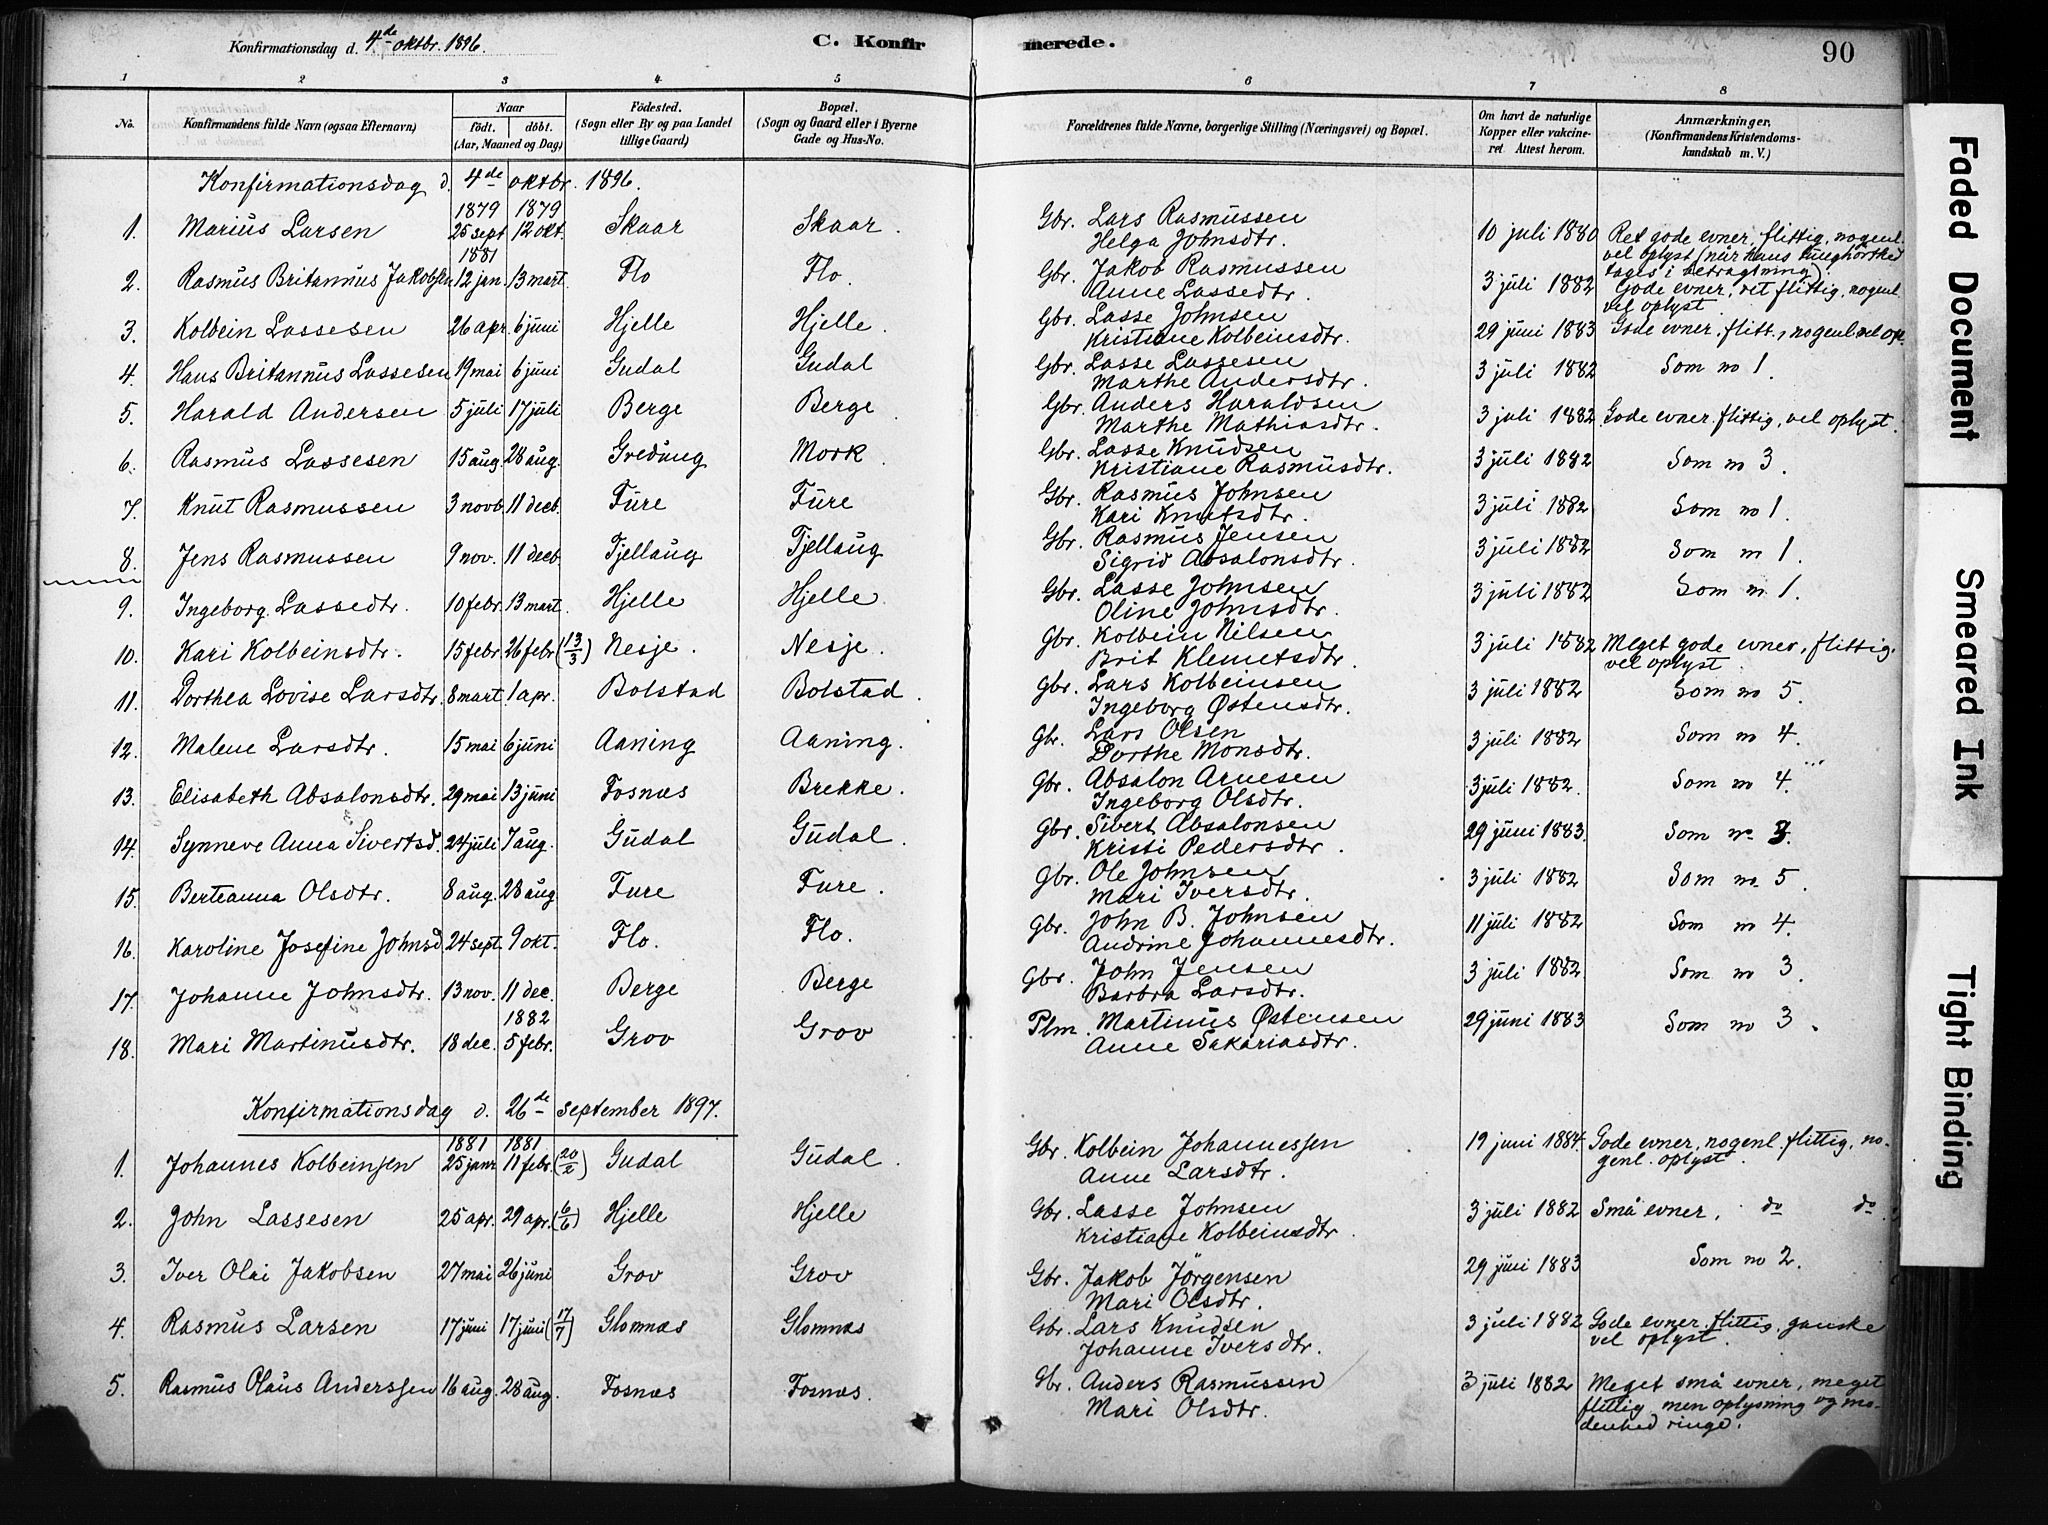 Konfirmationsdag d. 4de oktbr. 1896.
C. Konfirmerede.
90
1 2 3 4 5 6 7 8
No.
Konfirmandens fulde Navn (ogsaa Efternavn)
Naar
födt. döbt.
(Aar, Maaned og Dag)
Födested.
(Sogn eller By og paa Landet
tillige Gaard)
Bopæl.
(Sogn og Gaard eller i Byerne
Gade og Hus-No.
Forældrenes fulde Navne, borgerlige Stilling (Næringsvei) og Bopæl.
Om havt de naturlige
Kopper eller vakcine-
ret Attest herom.
Anmærkninger,
(Konfirmandens Kristendoms-
kundskab m. V.)
Konfirmationsdag d. 4de oktbr. 1896.
1879 1879
1. Marius Larsen 25 sept 12 okt. Skaar Skaar. Gbr. Lars Rasmussen 10 juli 1880 Ret gode evner, flittig, nogenl.
Helga Johnsdtr. vel oplyst (når hans tunghørthed
tages i betragtning).
1881
2. Rasmus Britannus Jakobsen 12 jan. 13 mart. Flo Flo. Gbr. Jakob Rasmussen 3 juli 1882 Gode evner, ret flittig, nogenl.
Anne Lassedtr. vel oplyst.
3. Kolbein Lassesen 26 apr. 6 juni Hjelle Hjelle. Gbr. Lasse Johnsen 29 juni 1883 Gode evner, flitt., nogenl. vel opl.
Kristiane Kolbeinsdtr.
4. Hans Britannus Lassesen 19 mai 6 juni Gudal Gudal Gbr. Lasse Lassesen 3 juli 1882 Som no 1.
Marthe Andersdtr.
5. Harald Andersen 5 juli 17 juli Berge Berge Gbr. Anders Haraldsen 3 juli 1882 Gode evner, flittig, vel oplyst.
Marthe Mathiasdtr.
6. Rasmus Lassesen 15 aug. 28 aug. Gredung Mork Gbr. Lasse Knudsen 3 juli 1882 Som no 3.
Kristiane Rasmusdtr.
7. Knut Rasmussen 3 novb. 11 decb. Fure Fure Gbr. Rasmus Johnsen 3 juli 1882 Som no 1.
Kari Knutsdtr.
8. Jens Rasmussen 9 nov. 11 decb. Fjellaug Fjellaug Gbr. Rasmus Jensen 3 juli 1882 Som no 1.
Sigrid Absalonsdtr.
9. Ingeborg Lassedtr. 10 febr. 13 mart. Hjelle Hjelle. Gbr. Lasse Johnsen 3 juli 1882 Som no 1.
Oline Johnsdtr.
10. Kari Kolbeinsdtr. 15 febr. 26 febr. (13/3) Nesje. Nesje. Gbr. Kolbein Nilsen 3 juli 1882 Meget gode evner, flittig.
Brit Klemetsdtr. vel oplyst.
11. Dorthea Lovise Larsdtr. 8 mart. 1 apr. Bolstad Bolstad. Gbr. Lars Kolbeinsen 3 juli 1882 Som no 5.
Ingeborg Østensdtr.
12. Malene Larsdtr. 15 mai 6 juni Aaning Aaning. Gbr. Lars Olsen 3 juli 1882 Som no 4.
Dorthe Monsdtr.
13. Elisabeth Absalonsdtr. 29 mai 13 juni Fosnæs Brekke. Gbr. Absalon Arnesen 3 juli 1882. Som no 4.
Ingeborg Olsdtr.
14. Synneve Anna Sivertsd. 24 juli 7 aug. Gudal Gudal. Gbr. Sivert Absalonsen 29 juni 1883. Som no 3.
Kristi Pedersdtr.
15. Berteanna Olsdtr. 8 aug. 28 aug. Fure Fure. Gbr. Ole Johnsen 3 juli 1882 Som no 5.
Mari Iversdtr.
16. Karoline Josefine Johnsd. 24 sept. 9 okt. Flo. Flo. Gbr. John B. Johnsen 11 juli 1882 Som no 4.
Andrine Johannesdtr.
17. Johanne Johnsdtr. 13 nov. 11 dec. Berge Berge Gbr. John Jensen 3 juli 1882. Som no 3.
Barbra Larsdtr.
1882
18. Mari Martinusdtr. 18 dec. 5 febr. Grov Grov Plm. Martinus Østensen 29 juni 1883 Som no 3.
Anne Sakariasdtr.
Konfirmationsdag d. 26de september 1897.
1881 1881
1. Johannes Kolbeinsen 25 janr. 11 febr. (20/2) Gudal Gudal. Gbr. Kolbein Johannessen 19 juni 1884. Gode evner, nogenl. flittig, no-
Anne Larsdtr. genl. oplyst.
2. John Lassesen 25 apr. 29 apr. (6/6) Hjelle Hjelle Gbr. Lasse Johnsen 3 juli 1882 Små evner, do do.
Kristiane Kolbeinsdtr.
3. Iver Olai Jakobsen 27 mai 26 juni Grov Grov Gbr. Jakob Jörgensen 29 juni 1883 Som no 2.
Mari Olsdtr.
4. Rasmus Larsen 17 juni 17 juni (17/7) Glomnæs Glomnæs Gbr. Lars Knudsen 3 juli 1882 Gode evner, flittig, ganske
Johanne Iversdtr. vel oplyst.
5. Rasmus Olaus Anderssen 16 aug. 28 aug. Fosnæs Fosnæs. Gbr. Anders Rasmussen 3 juli 1882 Meget små evner, meget
Mari Olsdtr. flittig men oplysning og mo-
denhed ringe.
Faded Document
Smeared Ink
Tight Binding